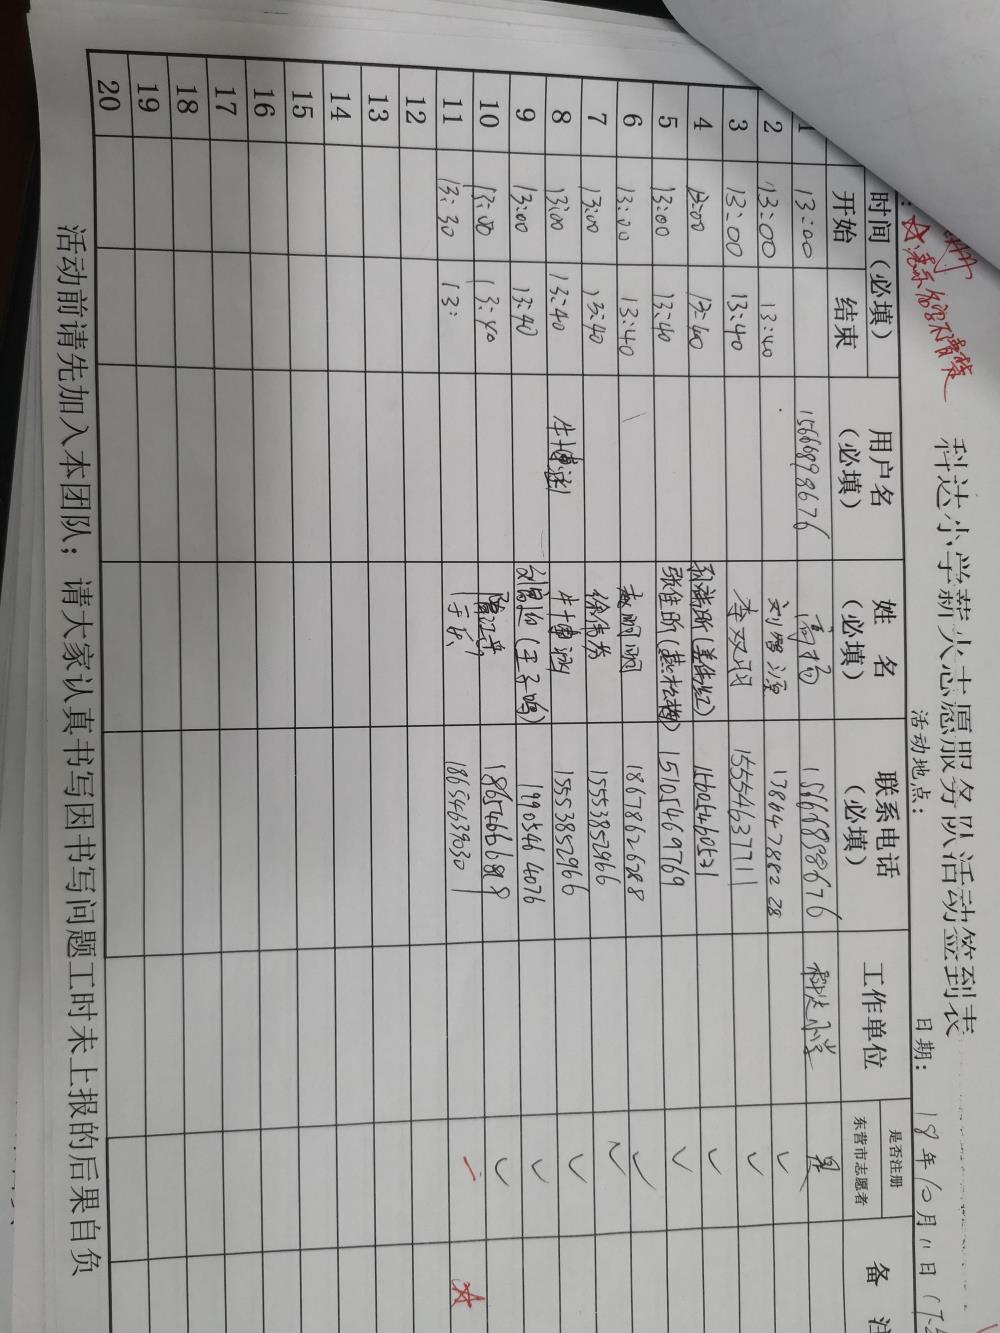 科达小学薪火志愿服务队活动签到表
活动地点： 日期： 18年10月11日
时间（必填） 用户名（必填） 姓名（必填） 联系电话（必填） 工作单位 是否注册东营市志愿者 备注
开始 结束
1 13:00 15668988676 高扬 15668988676 科达小学 是
2 13:00 13:40 17864278828 ✓
3 13:00 13:40 李双玥 15554637711 ✓
4 13:00 13:40 15605460531 ✓
5 13:00 13:40 15105469769 ✓
6 13:00 13:40 赵明明 18678626288 ✓
7 13:00 13:40 徐伟芳 15553852966 ✓
8 13:00 13:40 牛博涵 牛博涵 15553852966 ✓
9 13:00 13:40 19905464076 ✓
10 13:00 13:40 18654666898 ✓
11 13:30 13: 于乐 18654639030
12
13
14
15
16
17
18
19
20
活动前请先加入本团队；请大家认真书写因书写问题工时未上报的后果自负